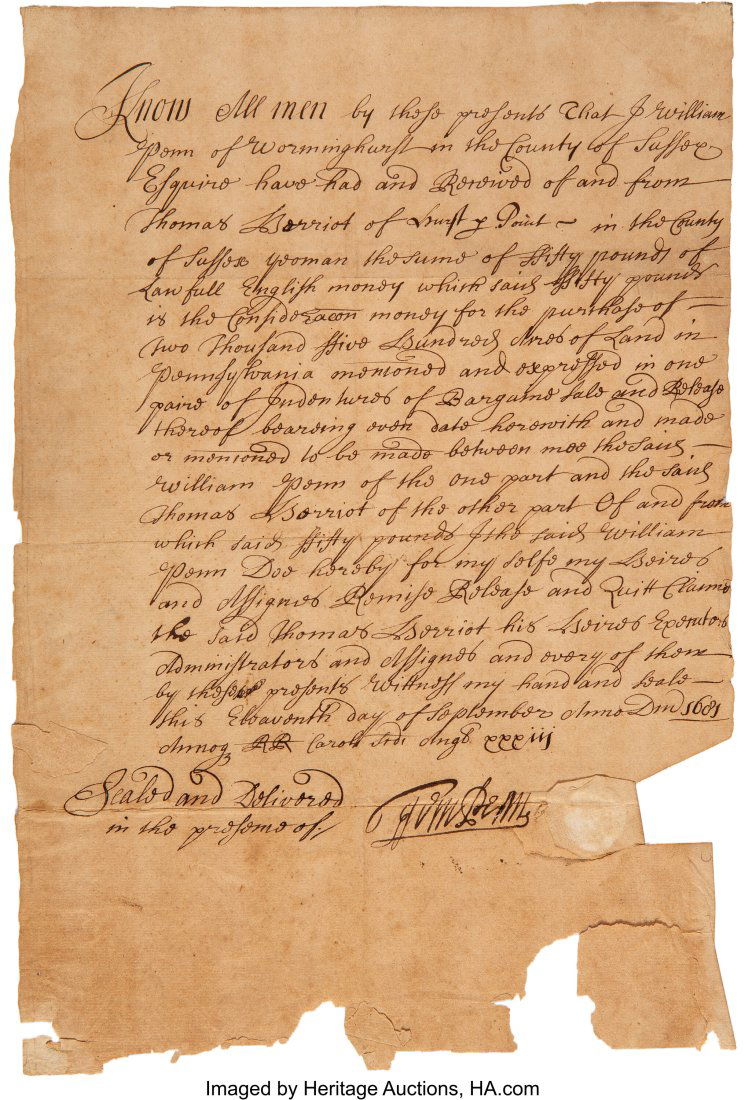 Know All men by these presents That I William
Penn of Worminghurst in the County of Sussex
Esquire have had and Received of and from
Thomas Herriot of Hurst p Point in the County
of Sussex yeoman the sume of ffifty pounds of
Lawfull English money which said ffifty pounds
is the Consideracon money for the purchase of
two Thousand ffive Hundred Acres of Land in
Pennsylvania mencioned and expressed in one
paire of Indentures of Bargaine sale and Release
thereof beareing even date herewith and made
or mencioned to be made between mee the said
William Penn of the one part and the said
Thomas Herriot of the other part Of and from
which said ffifty pounds I the said William
Penn Doe hereby for my selfe my Heires
and Assignes Remise Release and Quitt Claime
the said Thomas Herriot his Heires Executors
Administrators and Assignes and every of them
by these presents Wittness my hand and seale
this Eleaventh day of September Anno Dm 1681
Annoq RR Caroli Scdi Angl xxxiij
Sealed and Delivered
in the presence of
Wm Penn
Imaged by Heritage Auctions, HA.com